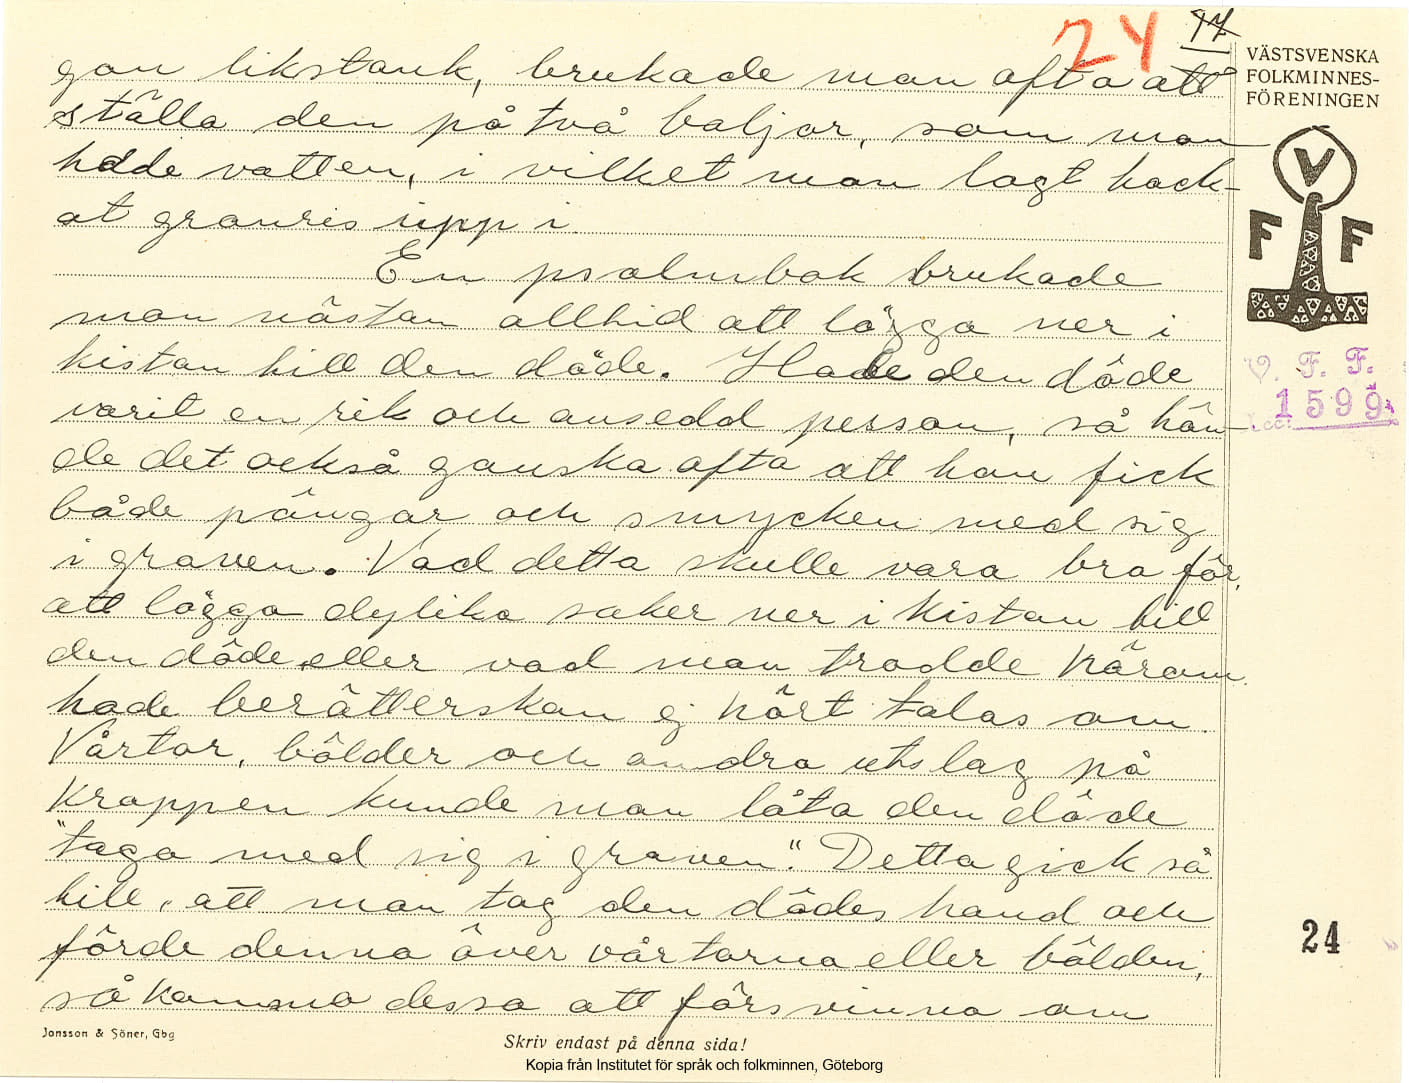 24 17
VÄSTSVENSKA
FOLKMINNES-
FÖRENINGEN
V
F F
V. F. F.
1599
Acc:
gon likstank, brukade man ofta att
ställa den på två baljor, som man
hade vatten, i vilket man lagt hack-
at granris upp i
En psalmbok brukade
man nästan alltid att lägga ner i
kistan till den döde. Hade den döde
varit en rik och ansedd person, så hän-
de det också ganska ofta att han fick
både pängar och smycken med sig
i graven. Vad detta skulle vara bra för,
att lägga dylika saker ner i kistan till
den döde, eller vad man trodde härom
hade berätterskan ej hört talas om.
Vårtor, bölder och andra utslag på
kroppen kunde man låta den döde
"taga med sig i graven." Detta gick så
till, att man tog den dödes hand och
förde denna över vårtorna eller bölden,
så komma dessa att försvinna om
24
Jonsson & Söner, Gbg
Skriv endast på denna sida!
Kopia från Institutet för språk och folkminnen, Göteborg